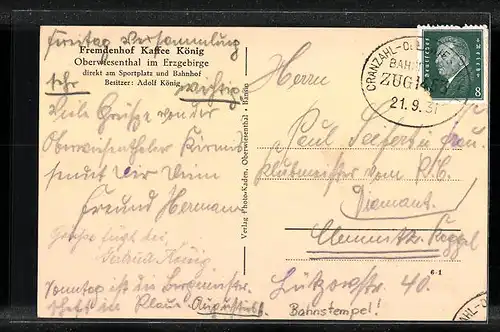 Freitag Versammlung
Fremdenhof Kaffee König
Oberwiesenthal im Erzgebirge
direkt am Sportplatz und Bahnhof
Besitzer: Adolf König
sehr wichtig
Viele Grüße von der
Oberwiesenthaler Kirmes
sendet Dir Dein
Freund Hermann
Grüße fügt bei
König
Sonntag ist die
in Plaue Augustusb.
Verlag Photo-Kaden, Oberwiesenthal - Bahnh.
CRANZAHL-O
BAH
ZUG 14
21.9.31
Deutsches Reich
8
Herrn
Paul Seifert u Frau
Klubmeister vom R.C.
Diamant.
Chemnitz-Kappel
Lützowstr. 40.
6-1
Bahnstempel!
ZAHL-O